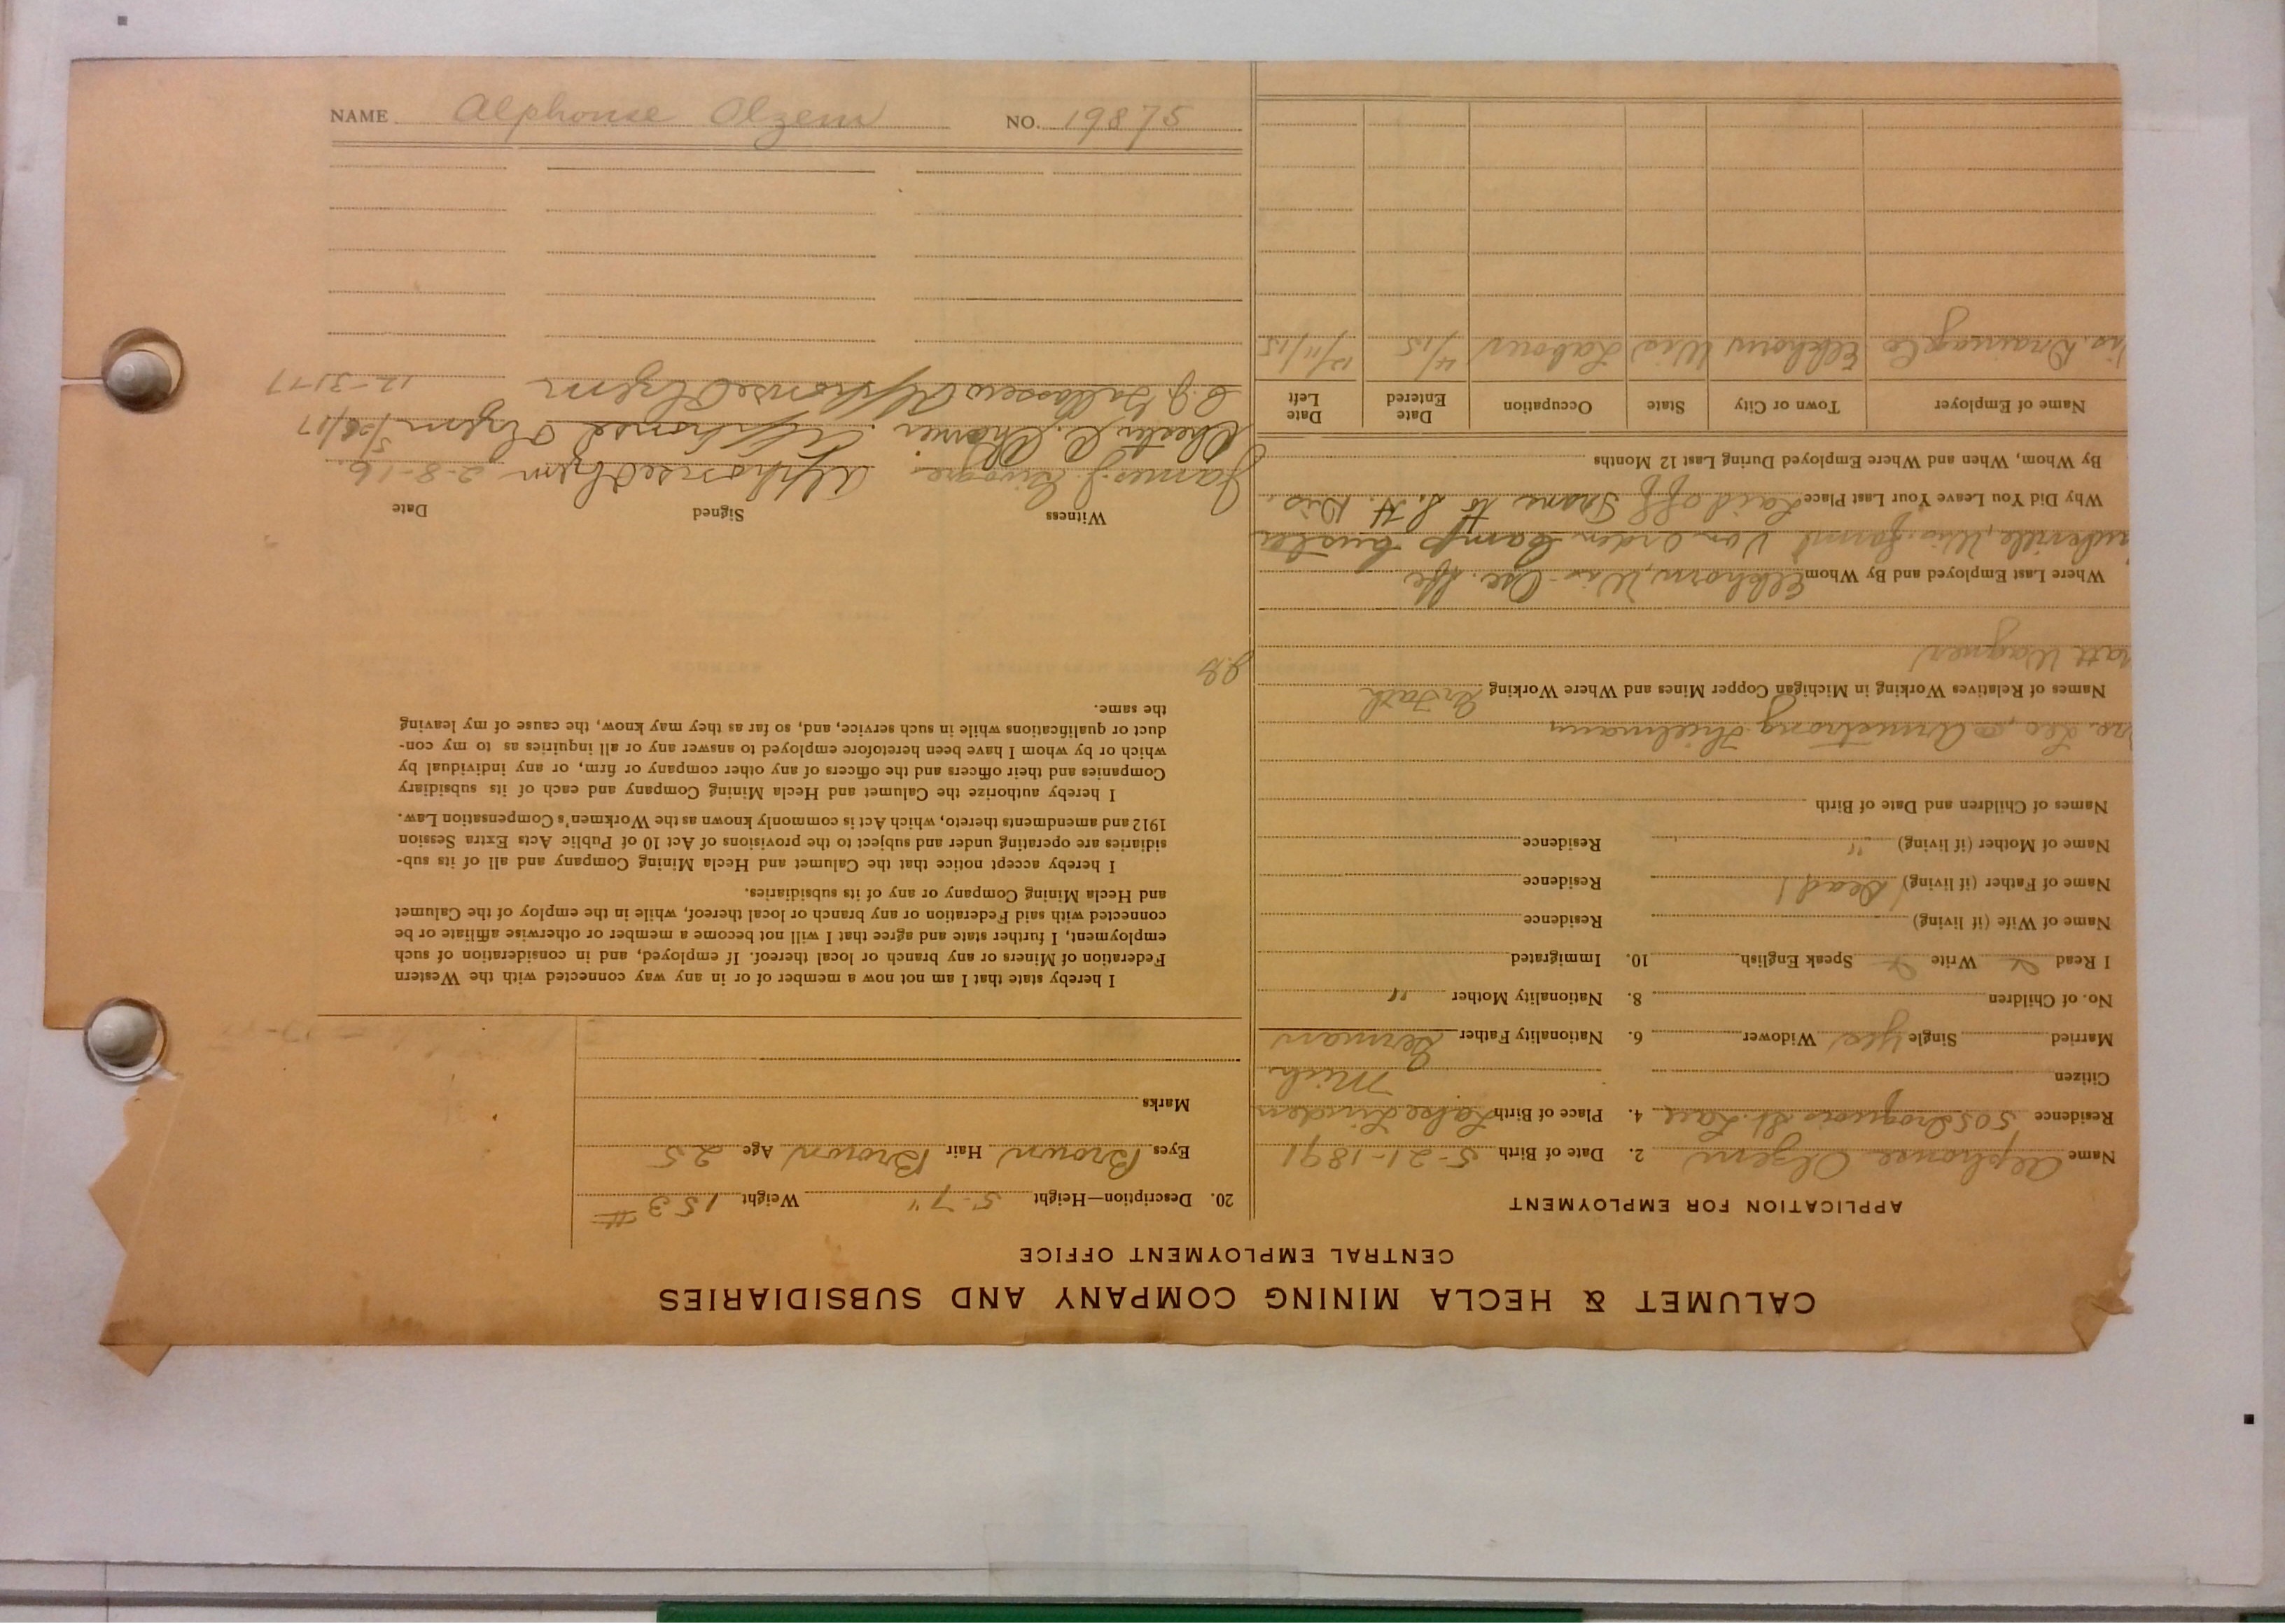 CALUMET & HECLA MINING COMPANY AND SUBSIDIARIES
CENTRAL EMPLOYMENT OFFICE
APPLICATION FOR EMPLOYMENT
Name Alphonse Olzem 2. Date of Birth 5-21-1891
Residence 505 Iroquois St. Laur 4. Place of Birth Lake Linden
Citizen Mich
Married Single Yes Widower 6. Nationality Father German
No. of Children 8. Nationality Mother "
I Read Write Speak English 10. Immigrated
Name of Wife (if living) Residence
Name of Father (if living) Dead Residence
Name of Mother (if living) " Residence
Names of Children and Date of Birth
Leo, Armstrong Thielmann
Names of Relatives Working in Michigan Copper Mines and Where Working
att Wagner
Where Last Employed and By Whom Elkhorn, Wis
Wis. Van Orden Camp
Why Did You Leave Your Last Place Laid off Trans to
By Whom, When and Where Employed During Last 12 Months
Name of Employer Town or City State Occupation Date Entered Date Left
is. Drainage Co Elkhorn Wis Labour 4/15 12/11/15
20. Description—Height 5-7" Weight 153 #
Eyes Brown Hair Brown Age 25
Marks
I hereby state that I am not now a member of or in any way connected with the Western
Federation of Miners or any branch or local thereof. If employed, and in consideration of such
employment, I further state and agree that I will not become a member or otherwise affiliate or be
connected with said Federation or any branch or local thereof, while in the employ of the Calumet
and Hecla Mining Company or any of its subsidiaries.
I hereby accept notice that the Calumet and Hecla Mining Company and all of its sub-
sidiaries are operating under and subject to the provisions of Act 10 of Public Acts Extra Session
1912 and amendments thereto, which Act is commonly known as the Workmen's Compensation Law.
I hereby authorize the Calumet and Hecla Mining Company and each of its subsidiary
Companies and their officers and the officers of any other company or firm, or any individual by
which or by whom I have been heretofore employed to answer any or all inquiries as to my con-
duct or qualifications while in such service, and, so far as they may know, the cause of my leaving
the same.
Witness Signed Date
James J. Alphonse Olzem 2-8-16.
Chester C. Alphonse Olzem 5/26/17
Alphonse Olzem 12-31-17
NAME Alphonse Olzem NO. 19875